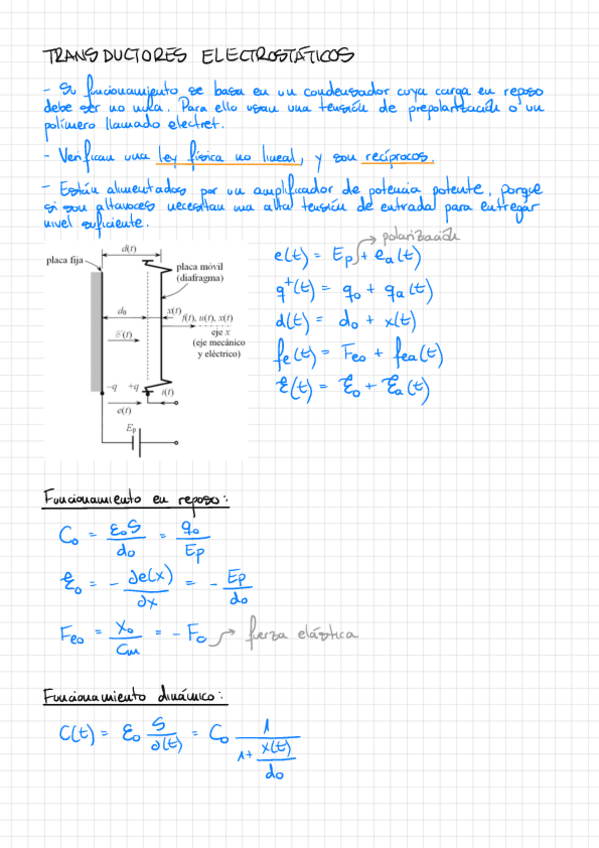 TRANSDUCTORES ELECTROSTÁTICOS
- Su funcionamiento se basa en un condensador cuya carga en reposo
debe ser no nula. Para ello usan una tensión de prepolarización o un
polímero llamado electret.
- Verifican una ley física no lineal, y son recíprocos.
- Están alimentados por un amplificador de potencia potente, porque
si son altavoces necesitan una alta tensión de entrada para entregar
nivel suficiente.
polarización
e(t) = Ep + ea(t)
q⁺(t) = q₀ + qa(t)
d(t) = d₀ + x(t)
fe(t) = Feo + fea(t)
ℰ(t) = ℰ₀ + ℰa(t)
d(t)
placa fija
placa móvil
(diafragma)
d₀
x(t)
f(t), u(t), x(t)
ℰ(t)
eje x
(eje mecánico
y eléctrico)
-q +q
i(t)
e(t)
Ep
Funcionamiento en reposo:
C₀ = ε₀S / d₀ = q₀ / Ep
ℰ₀ = - ∂e(x) / ∂x = - Ep / d₀
Feo = X₀ / Cm = - Fc → fuerza elástica
Funcionamiento dinámico:
C(t) = ε₀ S / ∂(t) = C₀ 1 / (1 + x(t) / d₀)